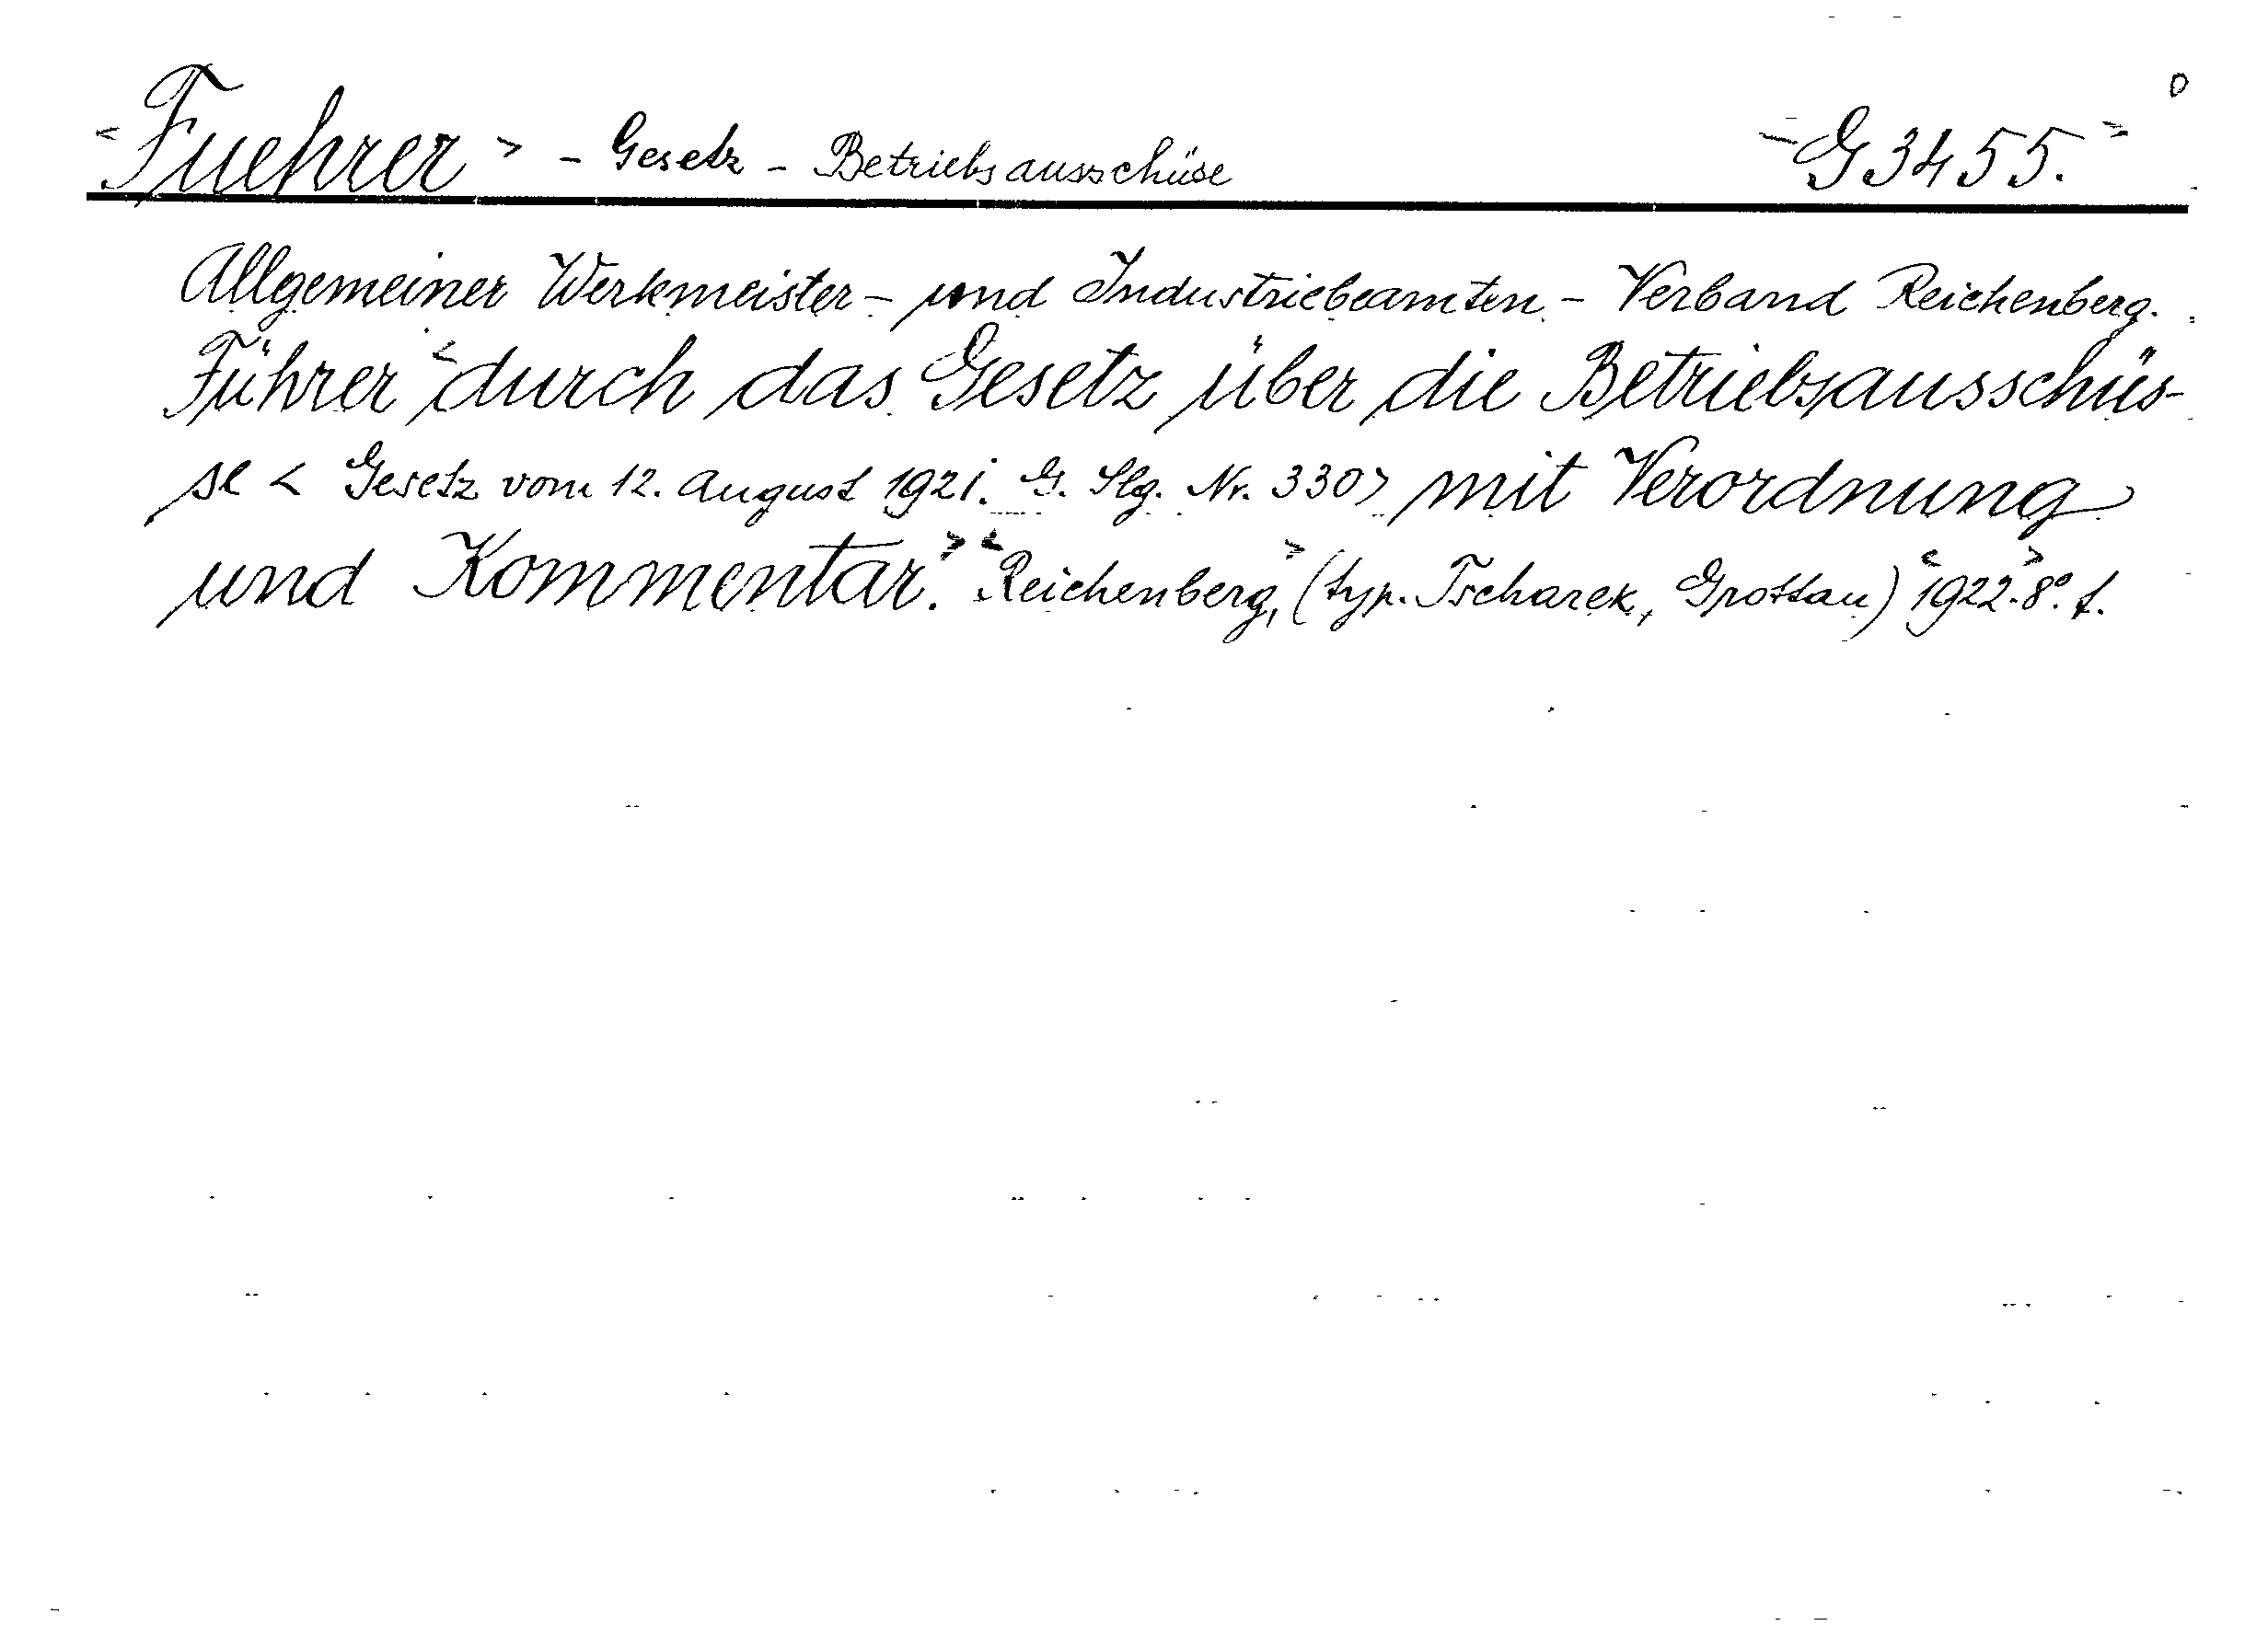 <Fuehrer> - Gesetz - Betriebsausschüse <G 3455.>
Allgemeiner Werkmeister - und Industriebeamten - Verband Reichenberg.
Führer <durch das Gesetz über die Betriebsausschüs-
se < Gesetz vom 12. August 1921. G. Slg. Nr. 330> mit Verordnung
und Kommentar.> <Reichenberg,> (typ. Tscharek, Grottau) <1922.> 8°. f.